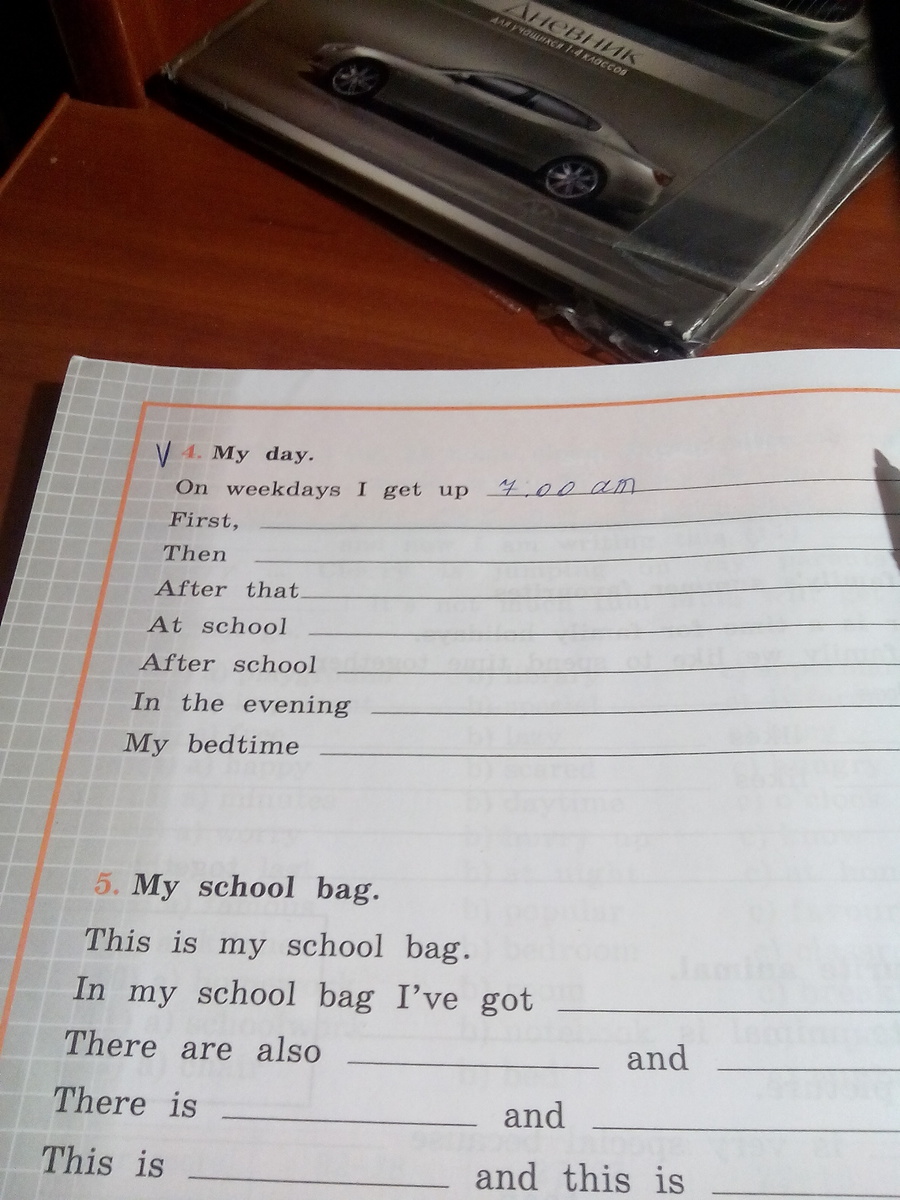 Дневник
для учащихся 1-4 классов
V 4. My day.
On weekdays I get up 7.00 am
First,
Then
After that
At school
After school
In the evening
My bedtime
5. My school bag.
This is my school bag.
In my school bag I've got
There are also and
There is and
This is and this is